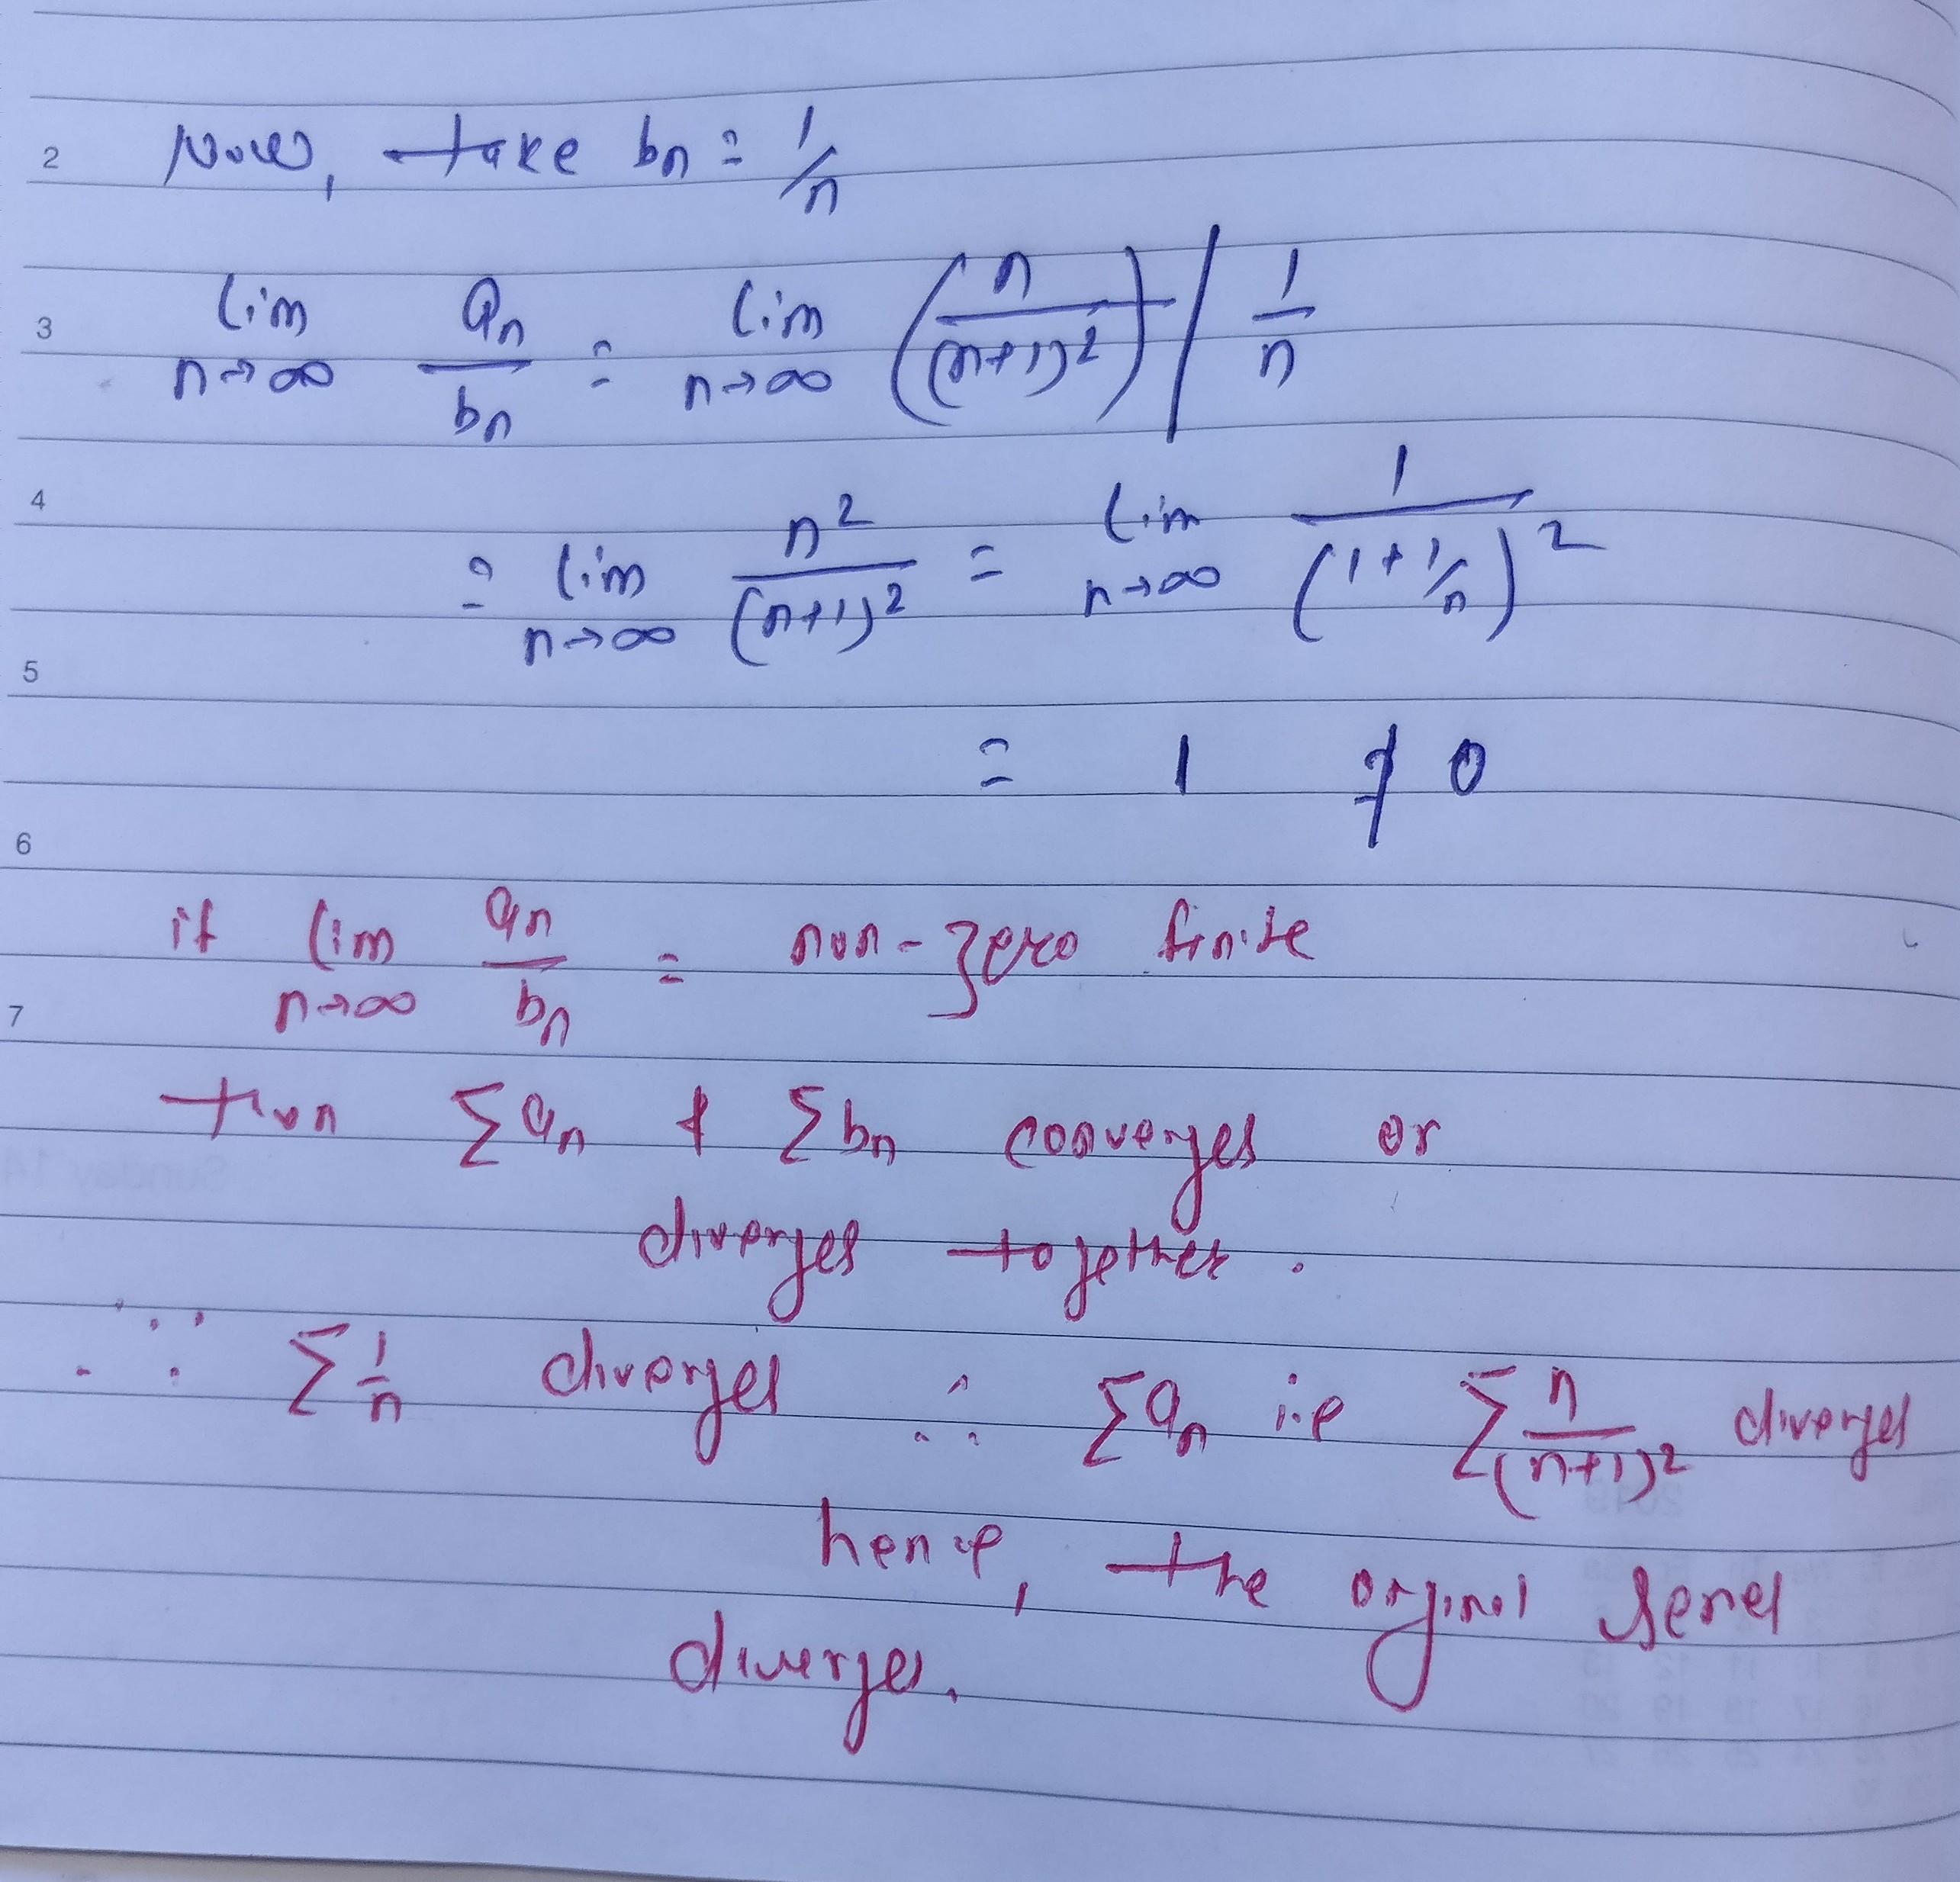 2 Now, take bn = 1/n
3 lim n→∞ an/bn = lim n→∞ (n/(n+1)²) / 1/n
4 = lim n→∞ n²/(n+1)² = lim n→∞ 1/(1+1/n)²
5
= 1 ≠ 0
6
if lim n→∞ an/bn = non-zero finite
7
then Σan & Σbn converges or
diverges together.
∵ Σ1/n diverges ∴ Σan i.e Σ n/(n+1)² diverges
hence, the orginal series
diverges.